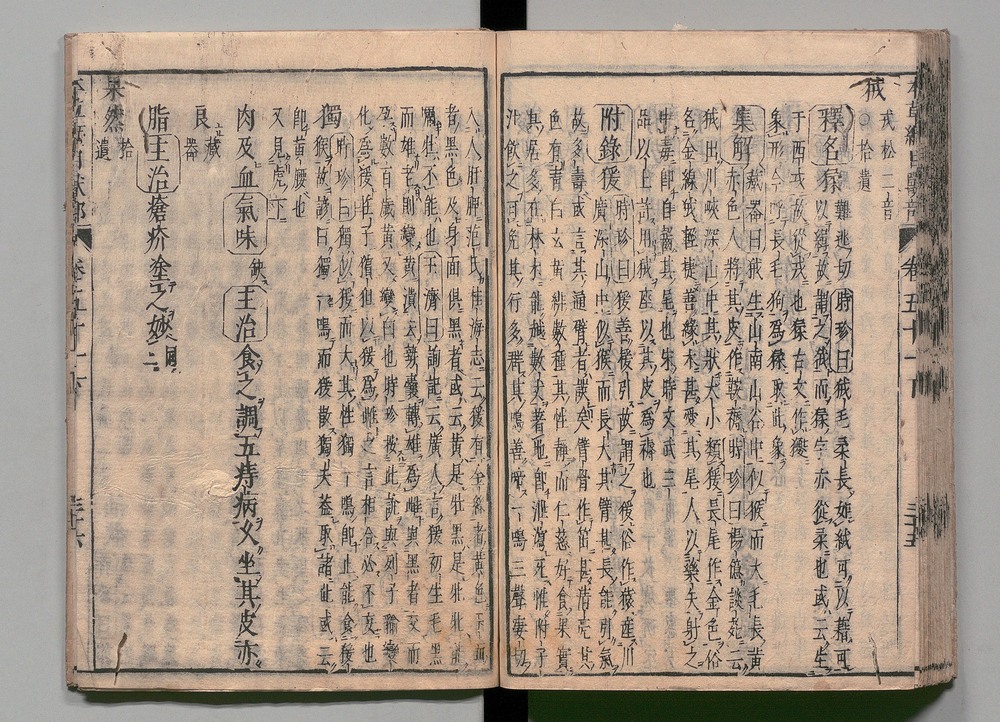 狨 戎松二音
拾遺
釋名猱 難逃切 時珍曰狨毛柔長如絨可以藉可
以緝故謂之狨而猱字亦從柔也或云生
于西戎故從戎也猱古文作夒
象形今呼長毛狗爲猱取此象
集解 藏器曰狨生山南山谷中似猴而大毛長黃
赤色人將其皮作鞍褥時珍曰楊億談苑云
狨出川峽深山中其狀大小類猨長尾作金色俗
名金線狨輕捷善緣木甚愛其尾人以藥矢射之
中毒即自齧其尾也宋時文武三
品以上許用狨座以其皮爲褥也
附錄猨 時珍曰猨善援引故謂之猨俗作猿產川
廣深山中似猴而長大其臂甚長能引氣
故多壽或言其通臂者誤矣臂骨作笛甚清亮其
色有青白玄黃緋數種其性靜而仁慈好食果實
其居多在林木能越數丈著地即泄瀉死惟附子
汁飲之可免其行多群其鳴善啼一鳴三聲凄切
入人肝脾范氏桂海志云猨有金絲者黃色玉面
者黑色及身面俱黑者或云黃是牡黑是牝牝能
嘯牡不能也王濟日詢記云廣人言猨初生毛黑
而雄老則變黃潰去勢囊轉雄爲雌與黑者交而
孕數百歲黃又變白也時珍按此說與列子貐變
化爲猨莊子獱狙以猨爲雌之言相合必不妄也
獨 時珍曰獨似猨而大其性獨一鳴即止能食猨
猴故諺曰獨一鳴而猨散獨夫蓋取諸此或云
即黃腰也
又見虎下
肉及血氣味 缺 主治食之調五痔病又坐其皮亦
良 藏器
脂主治瘡疥塗之妙 同上
果然 拾遺
卷五十一
三十五
三十六